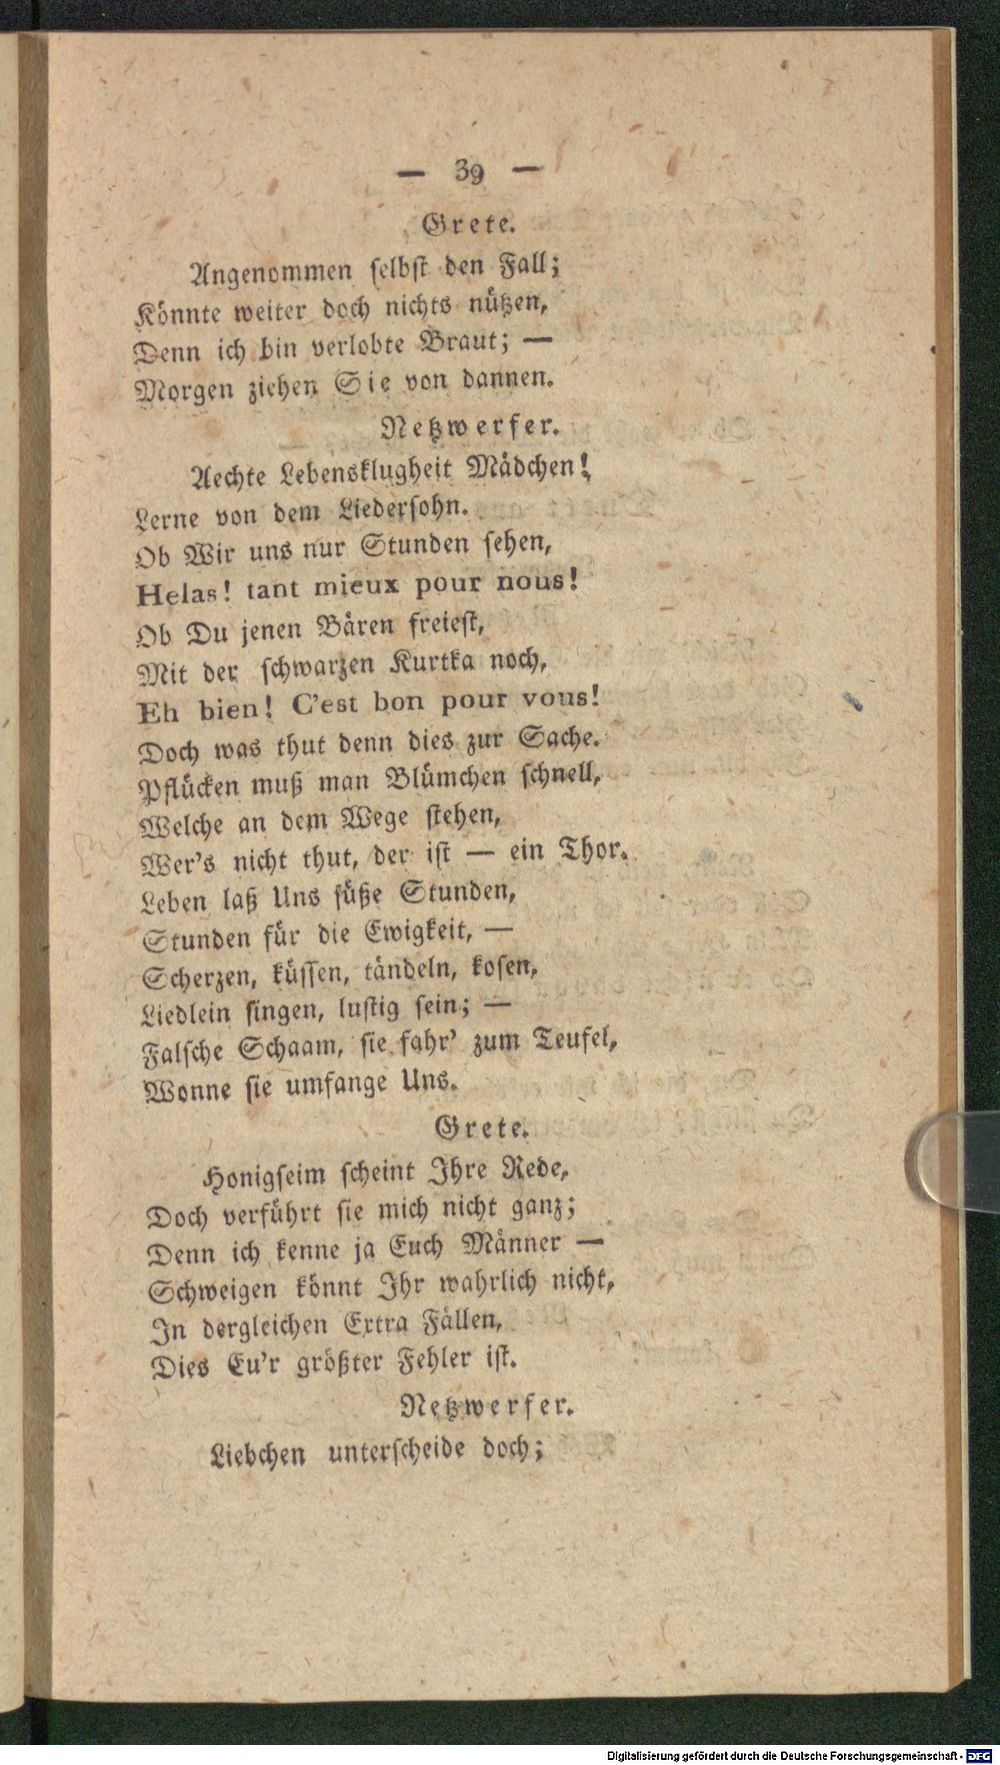 — 39 —
Grete.
Angenommen selbst den Fall;
Könnte weiter doch nichts nützen,
Denn ich bin verlobte Braut; —
Morgen ziehen Sie von dannen.
Netzwerfer.
Aechte Lebensklugheit Mädchen!
Lerne von dem Liedersohn.
Ob Wir uns nur Stunden sehen,
Helas! tant mieux pour nous!
Ob Du jenen Bären freiest,
Mit der schwarzen Kurtka noch,
Eh bien! C'est bon pour vous!
Doch was thut denn dies zur Sache.
Pflücken muß man Blümchen schnell,
Welche an dem Wege stehen,
Wer's nicht thut, der ist — ein Thor.
Leben laß Uns süße Stunden,
Stunden für die Ewigkeit, —
Scherzen, küssen, tändeln, kosen,
Liedlein singen, lustig sein; —
Falsche Schaam, sie fahr' zum Teufel,
Wonne sie umfange Uns.
Grete.
Honigseim scheint Ihre Rede,
Doch verführt sie mich nicht ganz;
Denn ich kenne ja Euch Männer —
Schweigen könnt Ihr wahrlich nicht,
In dergleichen Extra Fällen,
Dies Eu'r größter Fehler ist.
Netzwerfer.
Liebchen unterscheide doch;
Digitalisierung gefördert durch die Deutsche Forschungsgemeinschaft - DFG